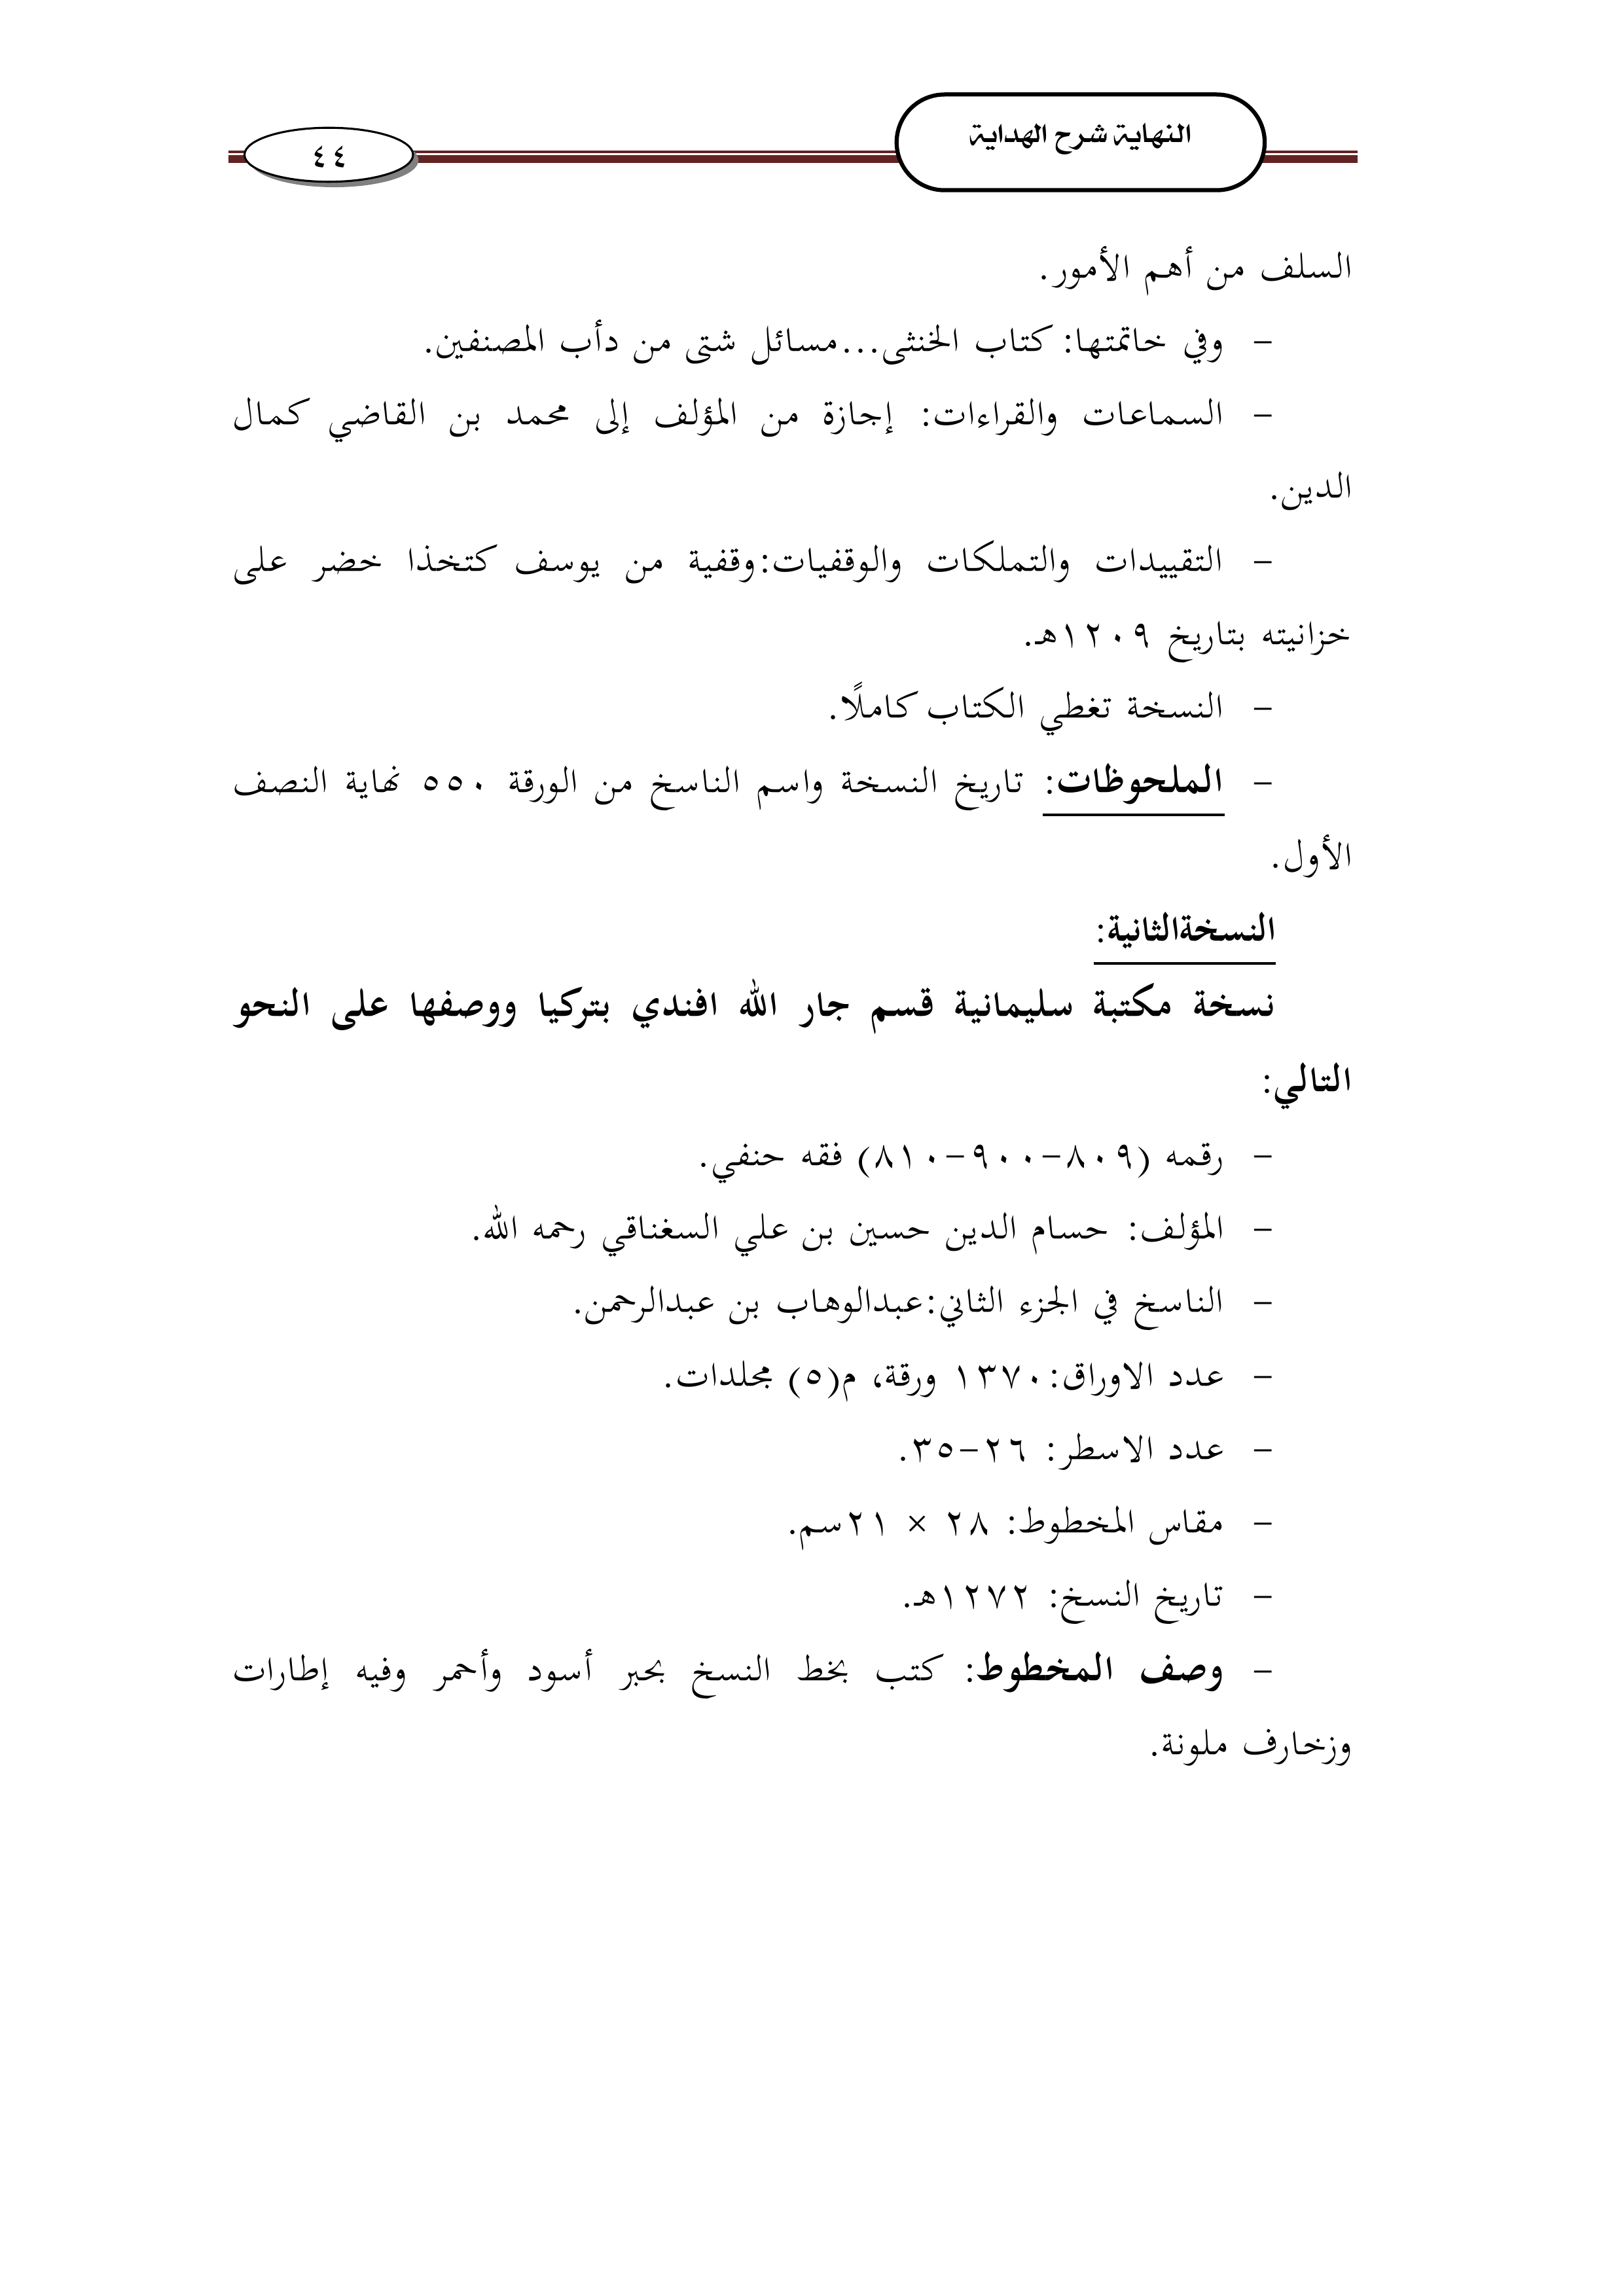 النهاية شرح الهداية
٤٤
السلف من أهم الأمور.
- وفي خاتمتها: كتاب الخنثى...مسائل شتى من دأب المصنفين.
- السماعات والقراءات: إجازة من المؤلف إلى محمد بن القاضي كمال
الدين.
- التقييدات والتملكات والوقفيات:وقفية من يوسف كتخذا خضر على
خزانيته بتاريخ ١٢٠٩هـ.
- النسخة تغطي الكتاب كاملًا.
- الملحوظات: تاريخ النسخة واسم الناسخ من الورقة ٥٥٠ نهاية النصف
الأول.
النسخةالثانية:
نسخة مكتبة سليمانية قسم جار الله افندي بتركيا ووصفها على النحو
التالي:
- رقمه (٨٠٩-٩٠٠-٨١٠) فقه حنفي.
- المؤلف: حسام الدين حسين بن علي السغناقي رحمه الله.
- الناسخ في الجزء الثاني:عبدالوهاب بن عبدالرحمن.
- عدد الاوراق:١٣٧٠ ورقة، م(٥) مجلدات.
- عدد الاسطر: ٢٦-٣٥.
- مقاس المخطوط: ٢٨ × ٢١سم.
- تاريخ النسخ: ١٢٧٢هـ.
- وصف المخطوط: كتب بخط النسخ بحبر أسود وأحمر وفيه إطارات
وزخارف ملونة.